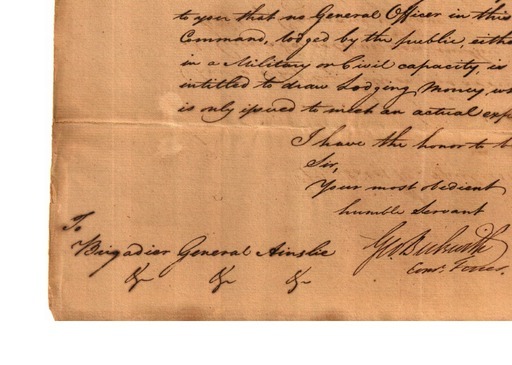 to you that no General Officer in this
Command, lodged by the public, eithe
in a Military or Civil capacity, is
intitled to draw Lodging Money, wh
is only issued to meet an actual exp
I have the honor to b
Sir,
Your most obedient
humble Servant
To
Brigadier General Ainslie
&c &c &c
Geo Beckwith
Com: Forces.